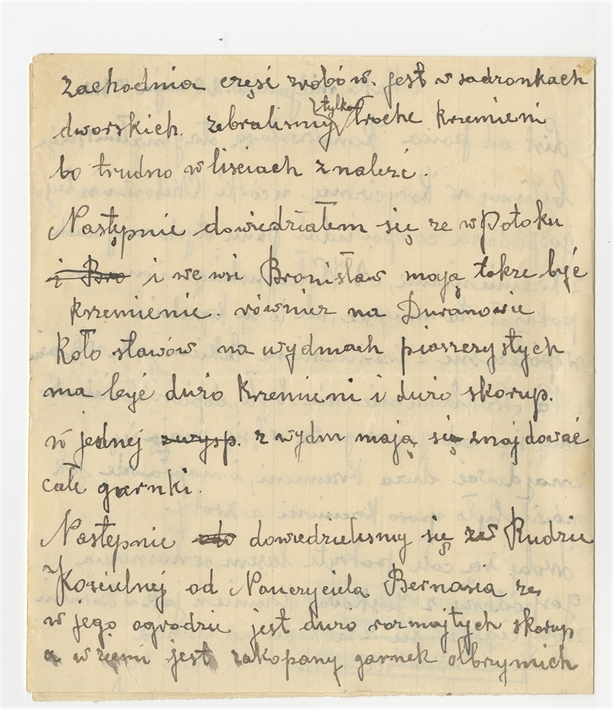 zachodnia częśi zrobów. jest w sadzonkach
dworskich. zebralismy tylko troche krzemieni
bo trudno w lisciach znależć.
Następnie dowiedziałem się ze w Potoku
i Bro i we wsi Bronisław mają takze być
krzemienie. równiez na Duranowie
Koło stawów na wydmach piaszczystych
ma być duzo krzemieni i duzo skorup.
w jednej zwysp. z wydm mają się znajdować
całe garnki.
Następnie dowiedzielismy się ze w Rudzie
Koscielnej od Nauczyciela Bernasia ze
w jego ogrodzu jest duzo rozmajtych skorup
a w ziemi jest zakopany garnek olbrzymich